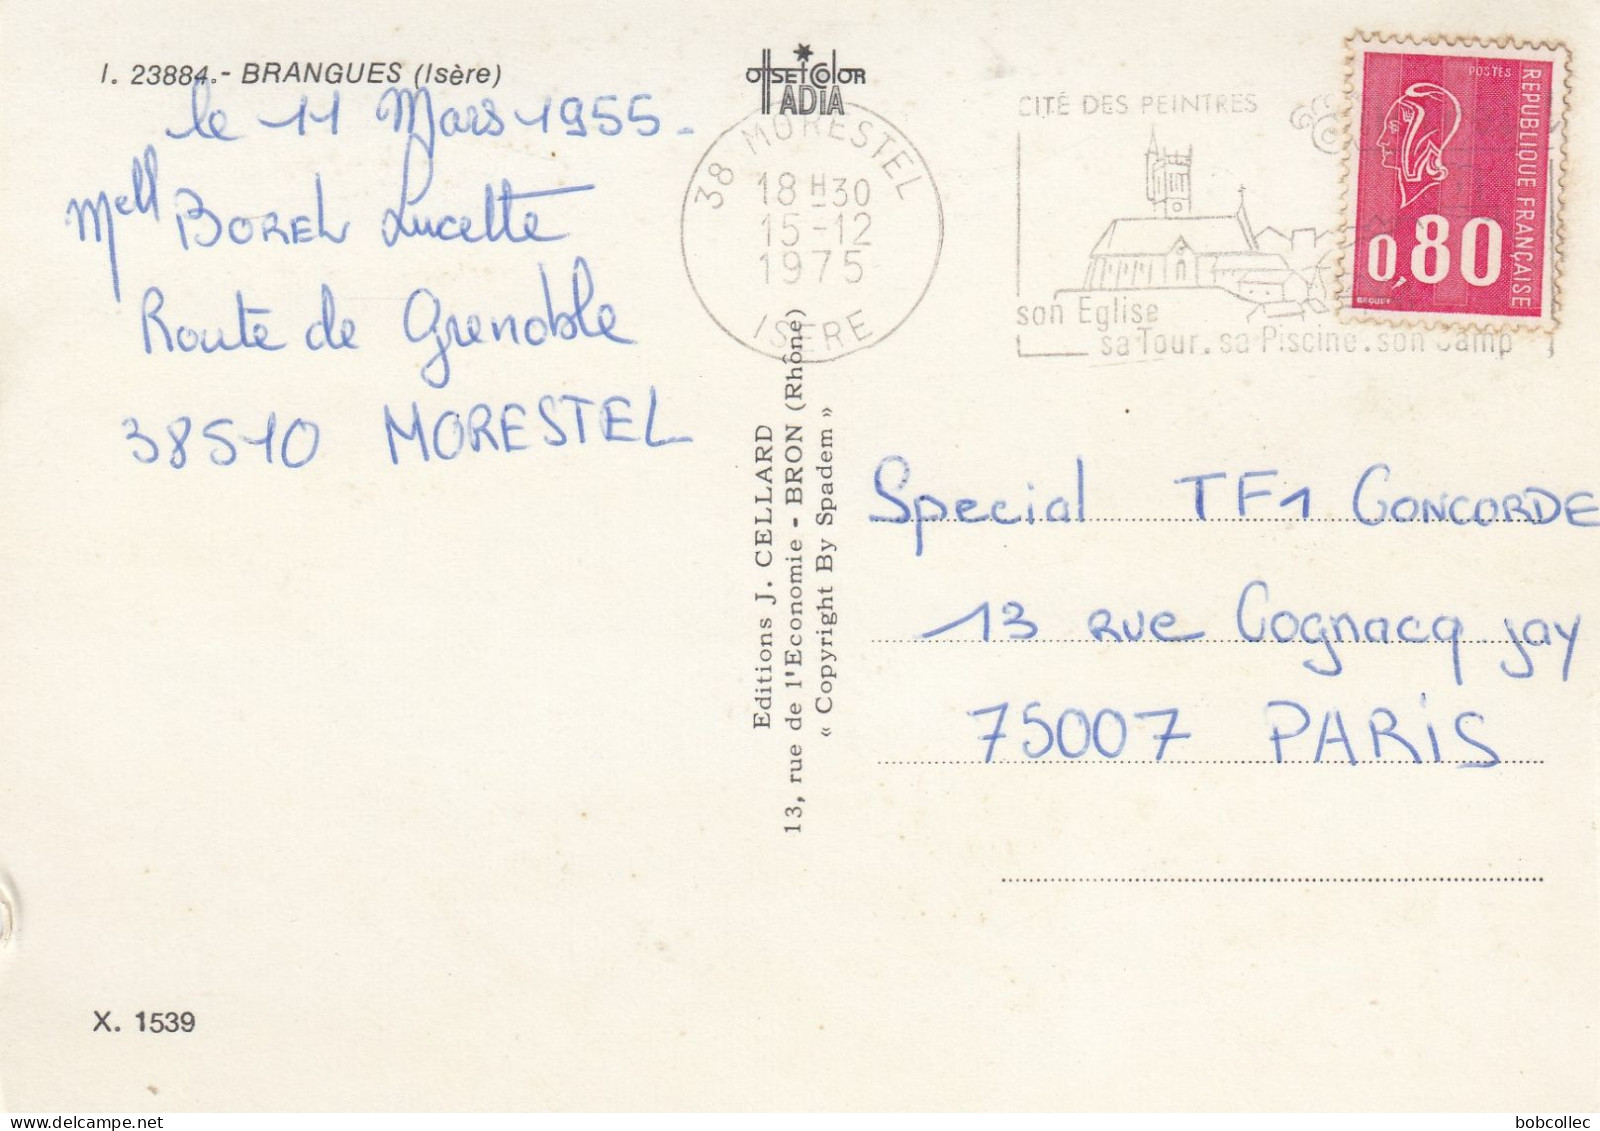 I. 23884.- BRANGUES (Isère)
le 11 Mars 1955 -
Mell BOREL Lucette
Route de Grenoble
38510 MORESTEL
X. 1539
OffSETCOlOR
ADIA
38 MORESTEL
18 H 30
15-12
1975
ISÈRE
CITÉ DES PEINTRES
son Eglise
sa Tour. sa Piscine. son Camp
POSTES
REPUBLIQUE FRANÇAISE
0,80
BEQUET
Editions J. CELLARD
13, rue de l'Economie - BRON (Rhône)
« Copyright By Spadem »
Special TF1 CONCORDE
13 RUE Cognacq jay
75007 PARiS
bobcollec